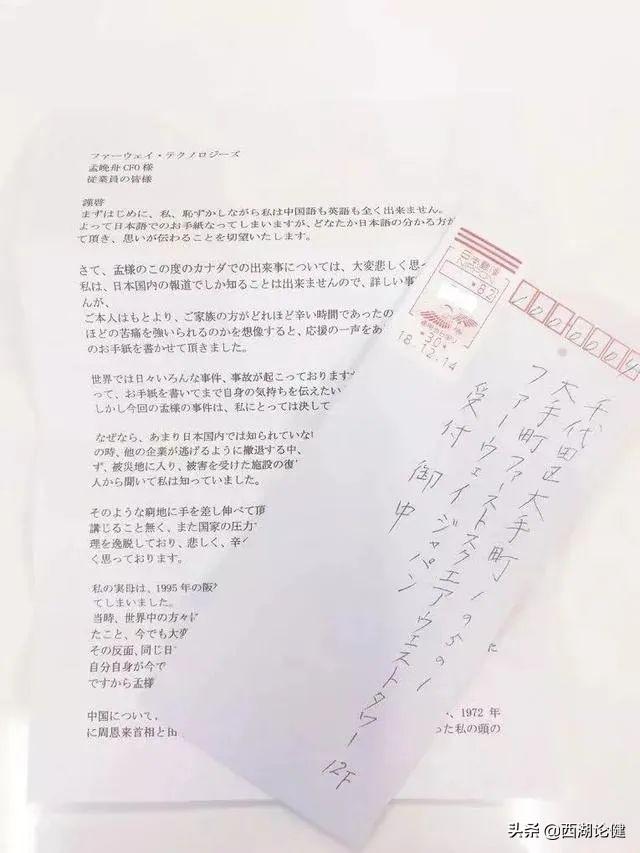 ファーウェイ・テクノロジーズ
孟晩舟CFO様
従業員の皆様
謹啓
まずはじめに、私、恥ずかしながら私は中国語も英語も全く出来ません。
よって日本語でのお手紙なってしまいますが、どなたか日本語の分かる方が
て頂き、思いが伝わることを切望いたします。
さて、孟様のこの度のカナダでの出来事については、大変悲しく思っ
私は、日本国内の報道でしか知ることは出来ませんので、詳しい事
んが、
ご本人はもとより、ご家族の方がどれほど辛い時間であったの
ほどの苦痛を強いられるのかを想像すると、応援の一声をあ
のお手紙を書かせて頂きました。
世界では日々いろんな事件、事故が起こっております
って、お手紙を書いてまで自身の気持ちを伝えたい
しかし今回の孟様の事件は、私にとっては決して
なぜなら、あまり日本国内では知られていな
の時、他の企業が逃げるように撤退する中、
ず、被災地に入り、被害を受けた施設の復
人から聞いて私は知っていました。
そのような窮地に手を差し伸べて頂
講じること無く、また国家の圧力
理を逸脱しており、悲しく、辛
く思っております。
私の実母は、1995年の阪
てしまいました。
当時、世界中の方々
たこと、今でも大変
その反面、同じ日
自分自身が今で
ですから孟様
中国について、
、1972年
に周恩来首相と田
った私の頭の
日本郵便
NIPPON
*82
*30*
18.12.14
千代田区大手町
大手町ファーストスクエアウエストタワー12F
ファーウェイジャパン
受付 御中
头条 @西湖论健